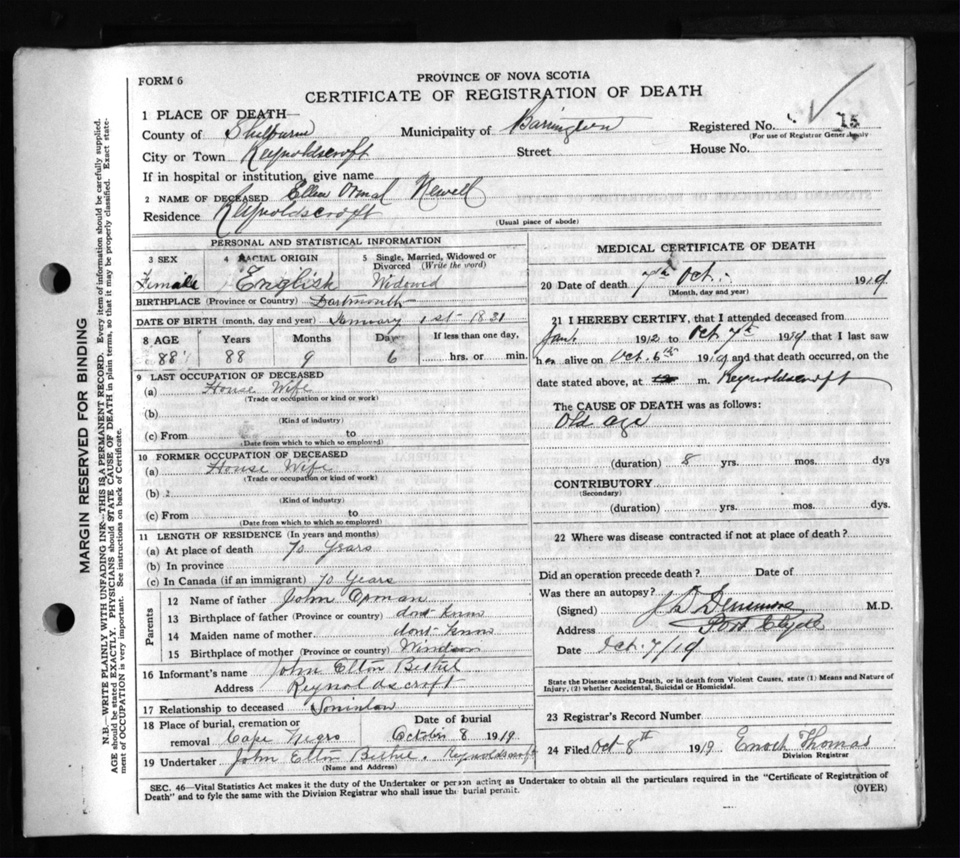 FORM 6
PROVINCE OF NOVA SCOTIA
CERTIFICATE OF REGISTRATION OF DEATH
1 PLACE OF DEATH—
County of Shelburne Municipality of Barrington Registered No. 15
(For use of Registrar General only
City or Town Reynoldscroft Street House No.
If in hospital or institution, give name
2 NAME OF DECEASED Ellen Ormal Newell
Residence Reynoldscroft
(Usual place of abode)
PERSONAL AND STATISTICAL INFORMATION
3 SEX 4 RACIAL ORIGIN 5 Single, Married, Widowed or Divorced (Write the word)
Female English Widowed
BIRTHPLACE (Province or Country) Dartmouth
DATE OF BIRTH (month, day and year) January 1st 1831
8 AGE Years Months Days If less than one day,
88 88 9 6 hrs. or min.
9 LAST OCCUPATION OF DECEASED
(a) House Wife
(Trade or occupation or kind or work)
(b)
(Kind of industry)
(c) From to
(Date from which to which so employed)
10 FORMER OCCUPATION OF DECEASED
(a) House Wife
(Trade or occupation or kind of work)
(b)
(Kind of industry)
(c) From to
(Date from which to which so employed)
11 LENGTH OF RESIDENCE (In years and months)
(a) At place of death 70 Years
(b) In province
(c) In Canada (if an immigrant) 70 Years
Parents
12 Name of father John
13 Birthplace of father (Province or country) dont know
14 Maiden name of mother dont know
15 Birthplace of mother (Province or country) Windsor
16 Informant's name John Elton Bethel
Address Reynoldscroft
17 Relationship to deceased Soninlaw
18 Place of burial, cremation or removal Cape Negro
Date of burial October 8 1919
19 Undertaker John Elton Bethel. Reynoldscroft
(Name and Address)
MEDICAL CERTIFICATE OF DEATH
20 Date of death 7th Oct. 1919
(Month, day and year)
21 I HEREBY CERTIFY, that I attended deceased from
1912 to Oct 7th 1919 that I last saw
her alive on Oct. 6th 1919 and that death occurred, on the
date stated above, at m. Reynoldscroft
The CAUSE OF DEATH was as follows:
Old age
(duration) 8 yrs. mos. dys
CONTRIBUTORY
(Secondary)
(duration) yrs. mos. dys.
22 Where was disease contracted if not at place of death?
Did an operation precede death? Date of
Was there an autopsy?
(Signed) M.D.
Address Port Clyde
Date Oct. 7/19
State the Disease causing Death, or in death from Violent Causes, state (1) Means and Nature of
Injury, (2) whether Accidental, Suicidal or Homicidal.
23 Registrar's Record Number
24 Filed Oct 8th 1919 Enoch Thomas
Division Registrar
SEC. 46—Vital Statistics Act makes it the duty of the Undertaker or person acting as Undertaker to obtain all the particulars required in the "Certificate of Registration of
Death" and to fyle the same with the Division Registrar who shall issue the burial permit. (OVER)
MARGIN RESERVED FOR BINDING
N.B.—WRITE PLAINLY WITH UNFADING INK—THIS IS A PERMANENT RECORD. Every item of information should be carefully supplied.
AGE should be stated EXACTLY. PHYSICIANS should STATE CAUSE OF DEATH in plain terms, so that it may be properly classified. Exact state-
ment of OCCUPATION is very important. See instructions on back of Certificate.